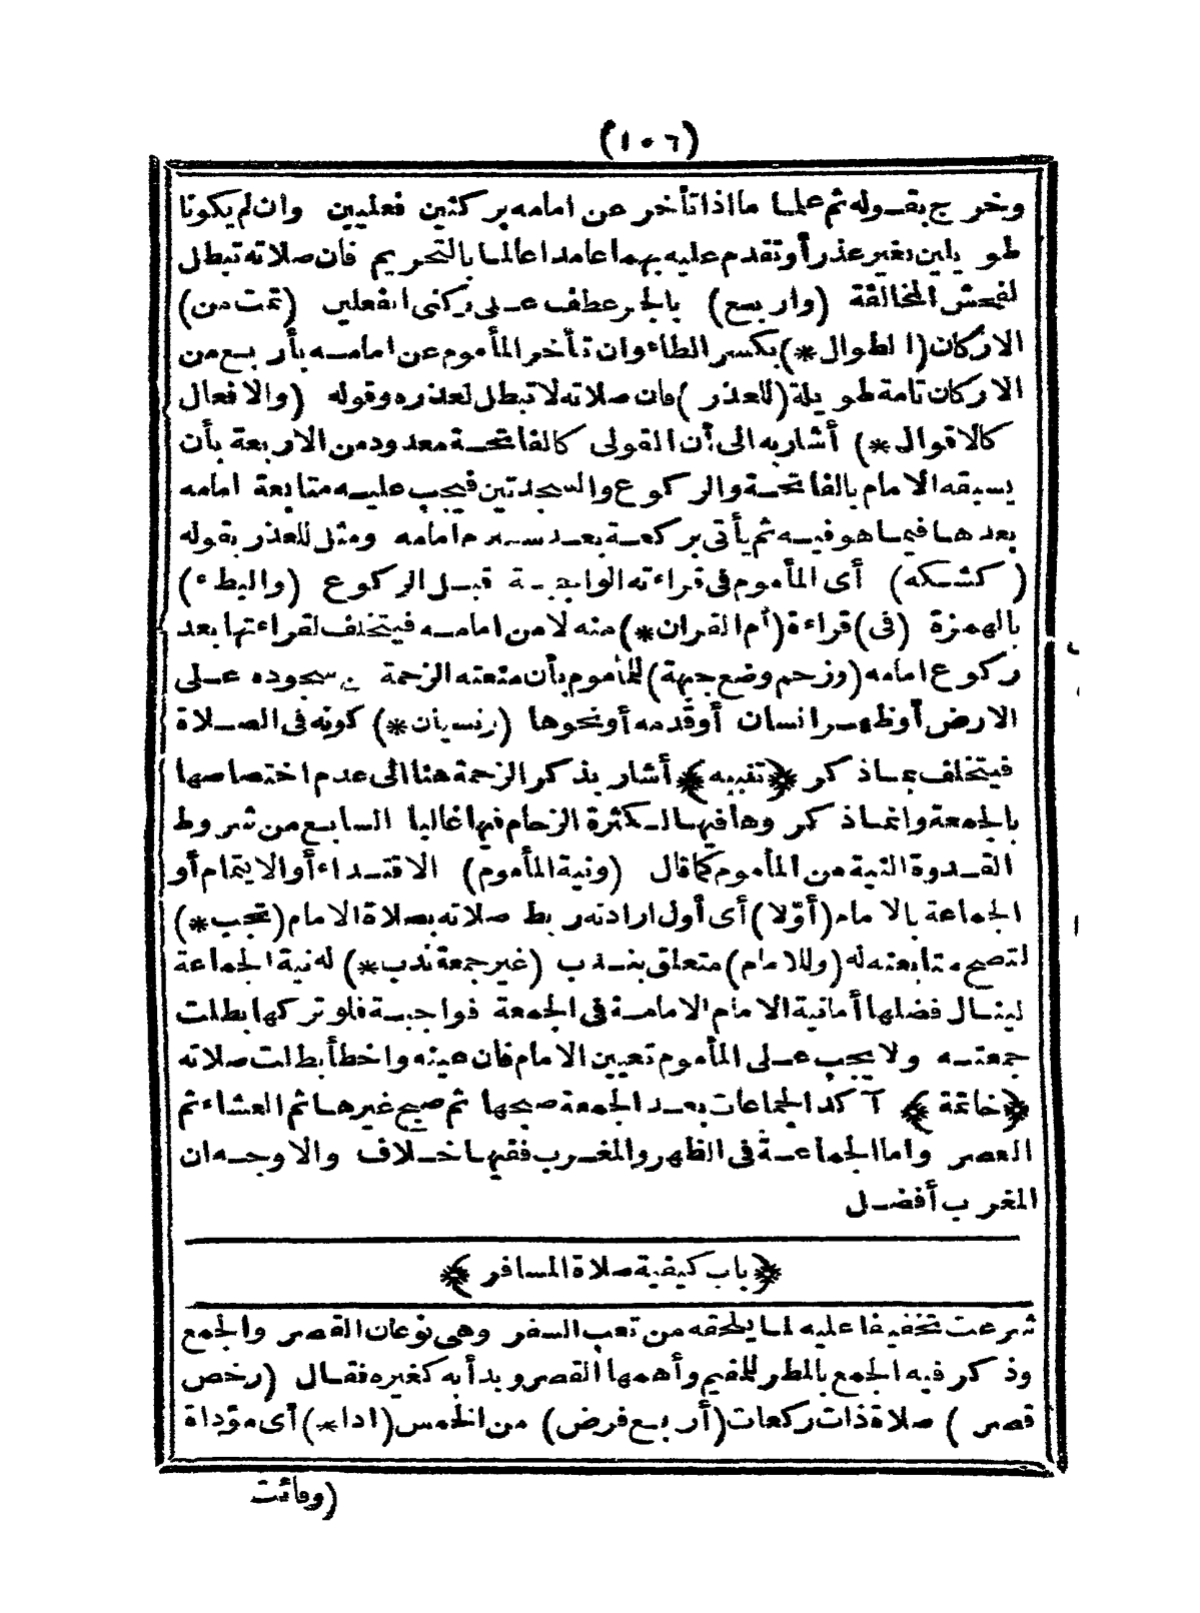 (١٠٦)
وخرج بقوله ثم علما ما اذا تأخر عن امامه بركنين فعليين وان لم يكونا
طويلين بغير عذر أو تقدم عليه بهما عامدا عالما بالتحريم فان صلاته تبطل
لفحش المخالفة (واربع) بالجر عطف على ركنى الفعلين (تمت من)
الاركان (الطوال*) بكسر الطاء وان تأخر المأموم عن امامه بأربع من
الاركان تامة طويلة (للعذر) فان صلاته لا تبطل لعذره وقوله (والافعال
كالاقوال*) أشار به الى أن القولى كالفاتحة معدود من الاربعة بأن
يسبقه الامام بالفاتحة والركوع والسجدتين فيجب عليه متابعة امامه
بعدها فيما هو فيه ثم يأتى بركعة بعد سلام امامه ومثل للعذر بقوله
(كشكه) أى المأموم فى قراءته الواجبة قبل الركوع (والبطء)
بالهمزة (فى) قراءة (أم القران*) منه لا من امامه فيتخلف لقراءتها بعد
ركوع امامه (وزحم وضع جبهة) للمأموم بأن منعته الزحمة عن سجوده على
الارض أو ظهر انسان أو قدمه أو نحوها (ونسيان*) كونه فى الصلاة
فيتخلف بماذكر ﴿تنبيه﴾ أشار بذكر الزحمة هنا الى عدم اختصاصها
بالجمعة وانما ذكروها فيها لكثرة الزحام فيها غالبا السابع من شروط
القدوة النية من المأموم كما قال (ونية المأموم) الاقتداء أو الايتمام أو
الجماعة بالامام (أوّلا) أى أول ارادته ربط صلاته بصلاة الامام (تجب*)
لتصح متابعته له (وللامام) متعلق بندب (غير جمعة ندب*) له نية الجماعة
لينال فضلها أما نية الامام الامامة فى الجمعة فواجبة فلو تركها بطلت
جمعته ولا يجب على المأموم تعيين الامام فان عينه واخطأ بطلت صلاته
﴿خاتمة﴾ آكد الجماعات بعد الجمعة صبحها ثم صبح غيرها ثم العشاء ثم
العصر واما الجماعة فى الظهر والمغرب ففيها خلاف والاوجه ان
المغرب أفضل
﴿باب كيفية صلاة المسافر﴾
شرعت تخفيفا عليه لما يلحقه من تعب السفر وهى نوعان القصر والجمع
وذكر فيه الجمع بالمطر للمقيم وأهمها القصر وبدأ به كغيره فقال (رخص
قصر) صلاة ذات ركعات (أربع فرض) من الخمس (اداء*) أى مؤداة
(وفائت